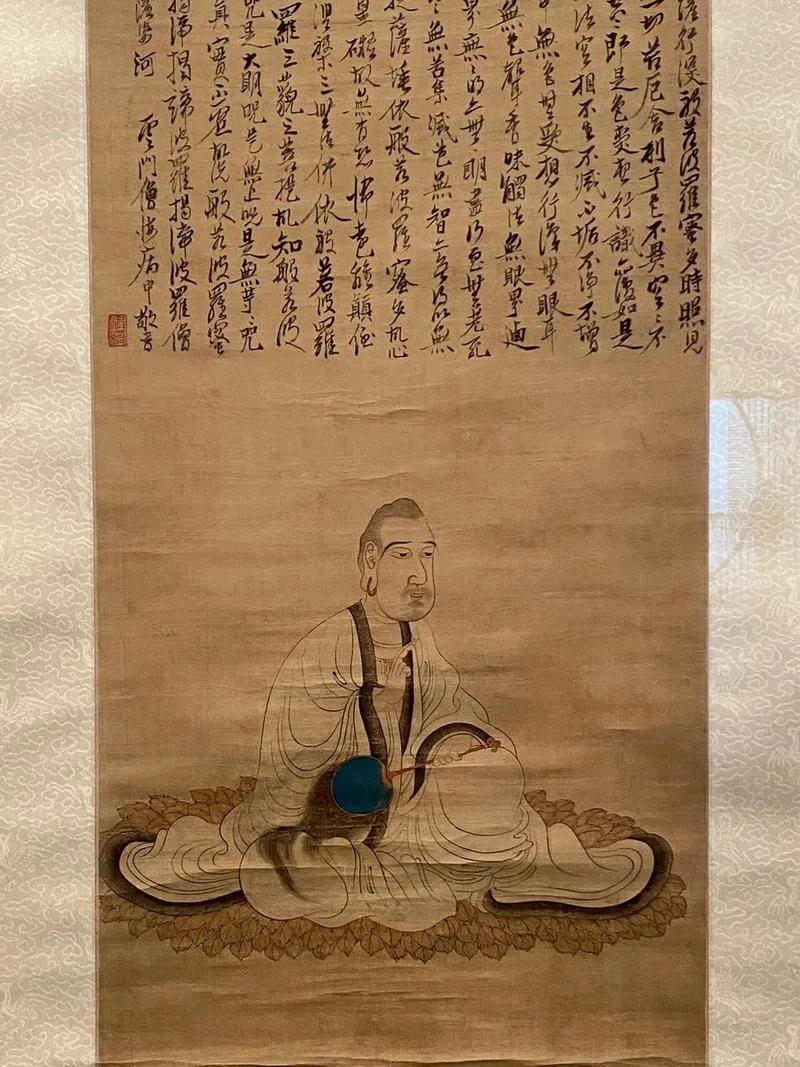 薩行深般若波羅蜜多時照見
一切苦厄舍利子色不異空空不
空即是色受想行識亦復如是
法空相不生不滅不垢不淨不增
中無色無受想行識無眼耳
無色聲香味觸法無眼界迺
界無無明亦無無明盡乃至無老死
無苦集滅道無智亦無得以無
提薩埵依般若波羅蜜多故心
罣礙故無有恐怖遠離顛倒
涅槃三世諸佛依般若波羅
羅三藐三菩提故知般若波
咒是大明咒是無上咒是無等等咒
真實不虛故說般若波羅蜜
揭諦揭諦波羅揭諦波羅僧
薩婆訶 雲門僧悔病中敬書